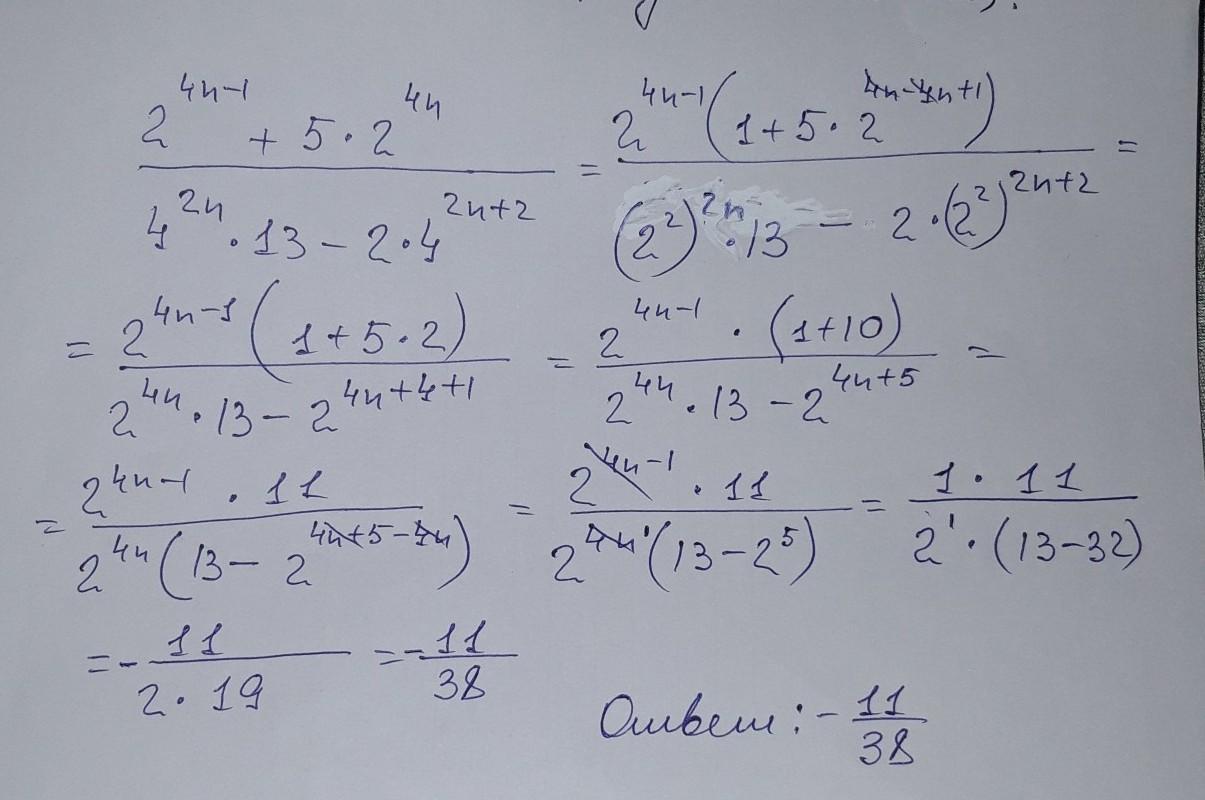 (2^{4n-1} + 5·2^{4n}) / (4^{2n}·13 - 2·4^{2n+2}) = 2^{4n-1}(1+5·2^{4n-4n+1}) / ((2^2)^{2n}·13 - 2·(2^2)^{2n+2}) =
= 2^{4n-1}(1+5·2) / (2^{4n}·13 - 2^{4n+4+1}) = 2^{4n-1}·(1+10) / (2^{4n}·13 - 2^{4n+5}) =
= 2^{4n-1}·11 / (2^{4n}(13 - 2^{4n+5-4n})) = 2^{4n-1}·11 / (2^{4n 1}(13-2^5)) = 1·11 / (2^1·(13-32))
= - 11 / (2·19) = - 11/38
Ответ: - 11/38